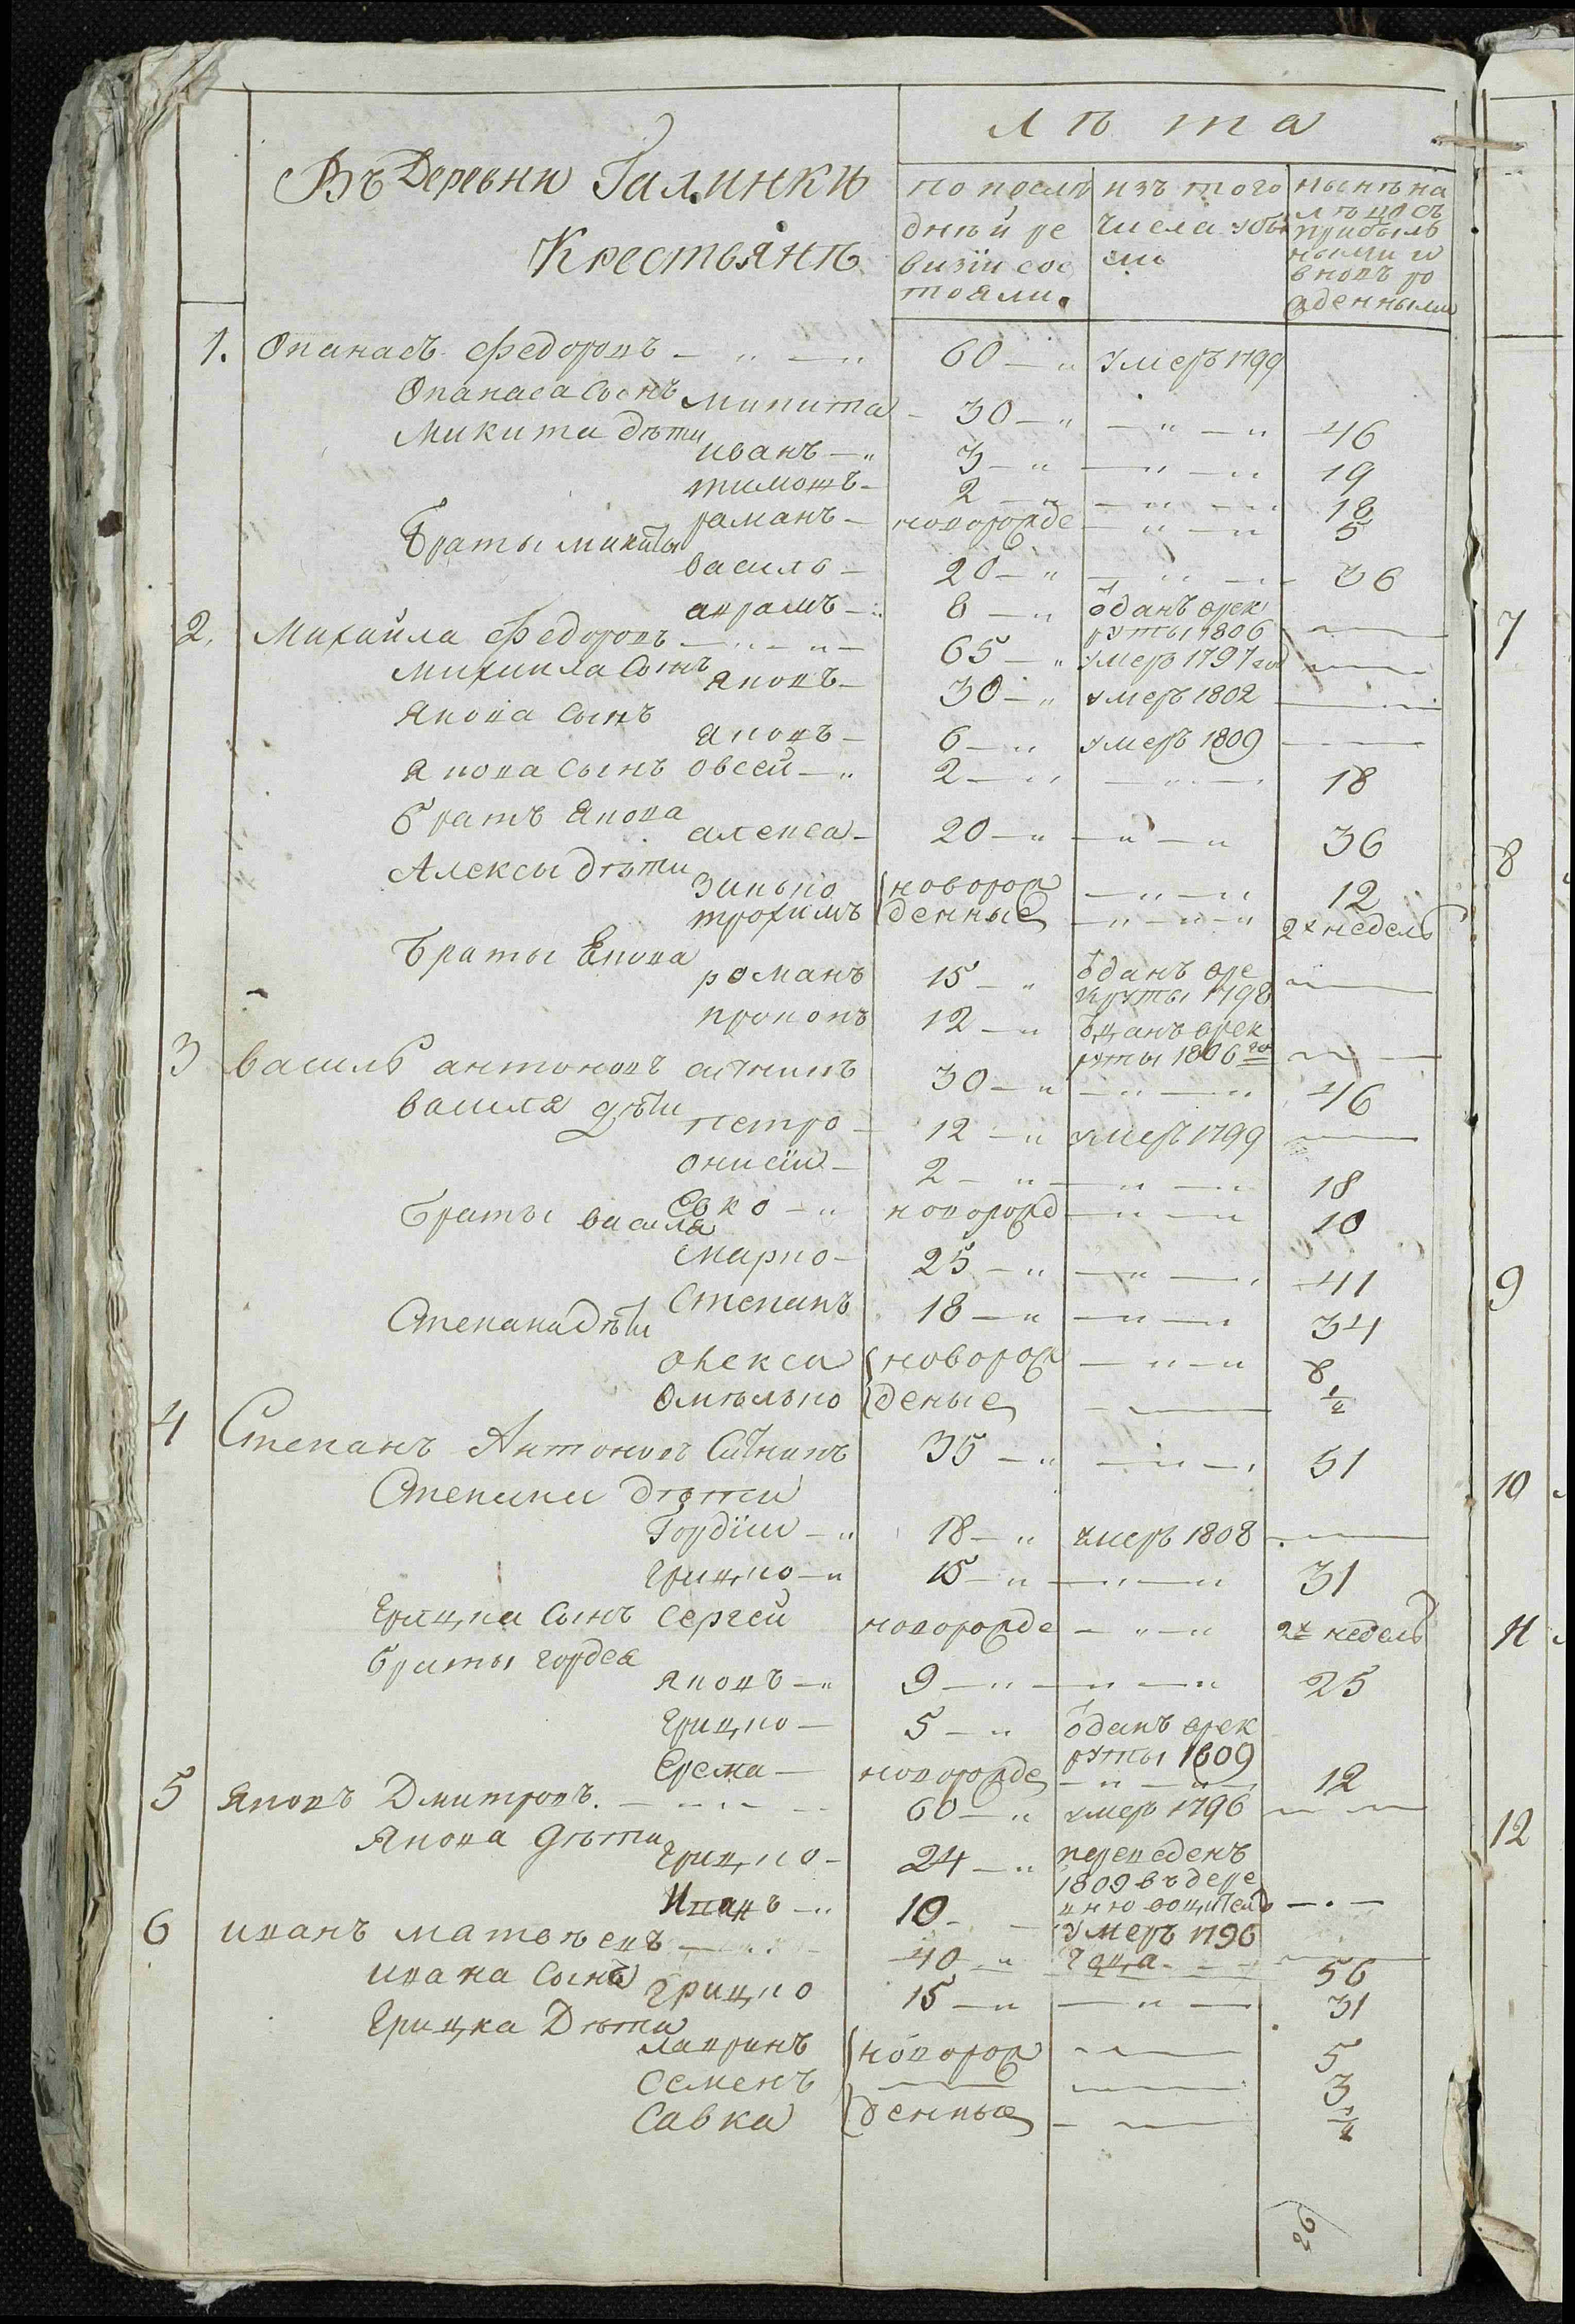 лѣта
Въ Деревни Галинки
Крестьянъ
по послѣ
днѣй ре
визіи сос
тояли.
изъ того
числа убы
ли
нынѣ на
лѣцо съ
прибыль
ными и
вновъ ро
жденными
1. Опанасъ Федоровъ — „ — „ 60 — „ умеръ 1799
Опанаса Сынъ микита — 30 — „ — „ — „ 46
Микита дѣти иванъ — „ 3 — „ — „ — „ 19
тимошъ — 2 — „ — „ — „ 18
раманъ — новорожде — „ — „ 5
Браты микиты
василь — 20 — „ — „ — 36
аврамъ — „ 8 — „ ѿданъ врек
руты 1806 —
2. Михайла Федоровъ — „ — „ — 65 — „ умеръ 1797 год —
михаила Сынъ яковъ — 30 — „ умеръ 1802 —
якова Сынъ
яковъ — 6 — „ умеръ 1809 —
якова сынъ овсей — „ 2 — „ — „ — 18
братъ якова алекса — 20 — „ — „ — „ 36
Алексы дѣти зинько новорож — „ — „ 12
трохимъ денные — „ — „ — „ 2х недель
Браты якова
романъ 15 — „ ѿданъ вре
круты 1798 —
прокопъ 12 — „ ѿданъ врек
руты 1806 го —
3 василь антоновъ 30 — „ — „ — „ 46
василя дѣти петро — 12 — „ умеръ 1799 —
2 — „ — „ — „ 18
новорожд — „ — „ 10
Браты василя
марко — 25 — „ — „ — „ 41
Степанъ 18 — „ — „ — „ 34
Степана дѣти
олекса новорож — „ — „ 8
Омѣлько деные — 1/2
4 Степанъ Антоновъ 35 — „ — „ — „ 51
Степана дѣти
Гордій — „ 18 — „ умеръ 1808 —
грицко — „ 15 — „ — „ — „ 31
грицка Сынъ сергей новорожде — „ — „ 2х недель
браты гордея
яковъ — „ 9 — „ — „ — „ 25
грицко — 5 — „ ѿданъ врек
руты 1809
Ерема — новорожде — „ — „ — 12
5 яковъ Дмитровъ. — — — 60 — „ умеръ 1796 —
якова дѣти грицко — 24 — „ переведенъ
1809 въ дере
вню
Иванъ — „ 10 — умеръ 1796 — . —
года
6 иванъ матвѣевъ — „ 40 — „ — 56
ивана Сынъ грицко 15 — „ — „ — 31
Грицка Дѣти
лавринъ новорож — 5
Семенъ — — 3
Савка денные — 1/2
7
8
9
10
11
12